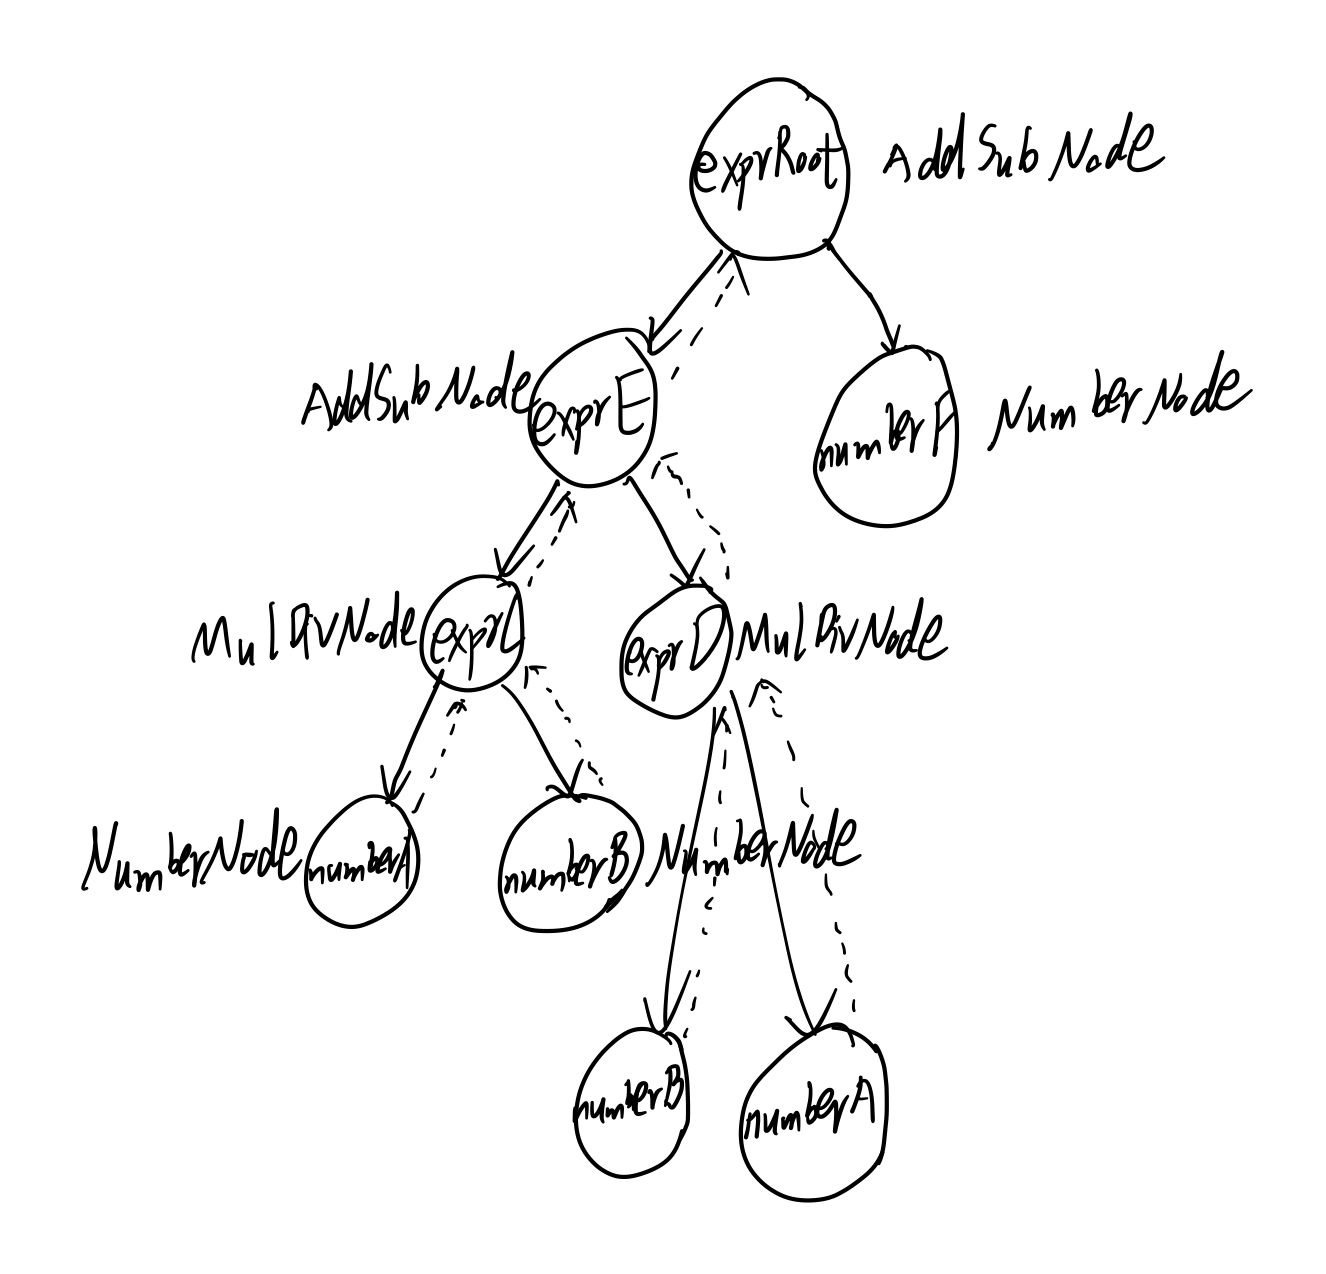 exprRoot AddSubNode
AddSubNode exprE
numberF NumberNode
MulDivNode exprC
exprD MulDivNode
NumberNode numberA
numberB NumberNode
numberB
numberA